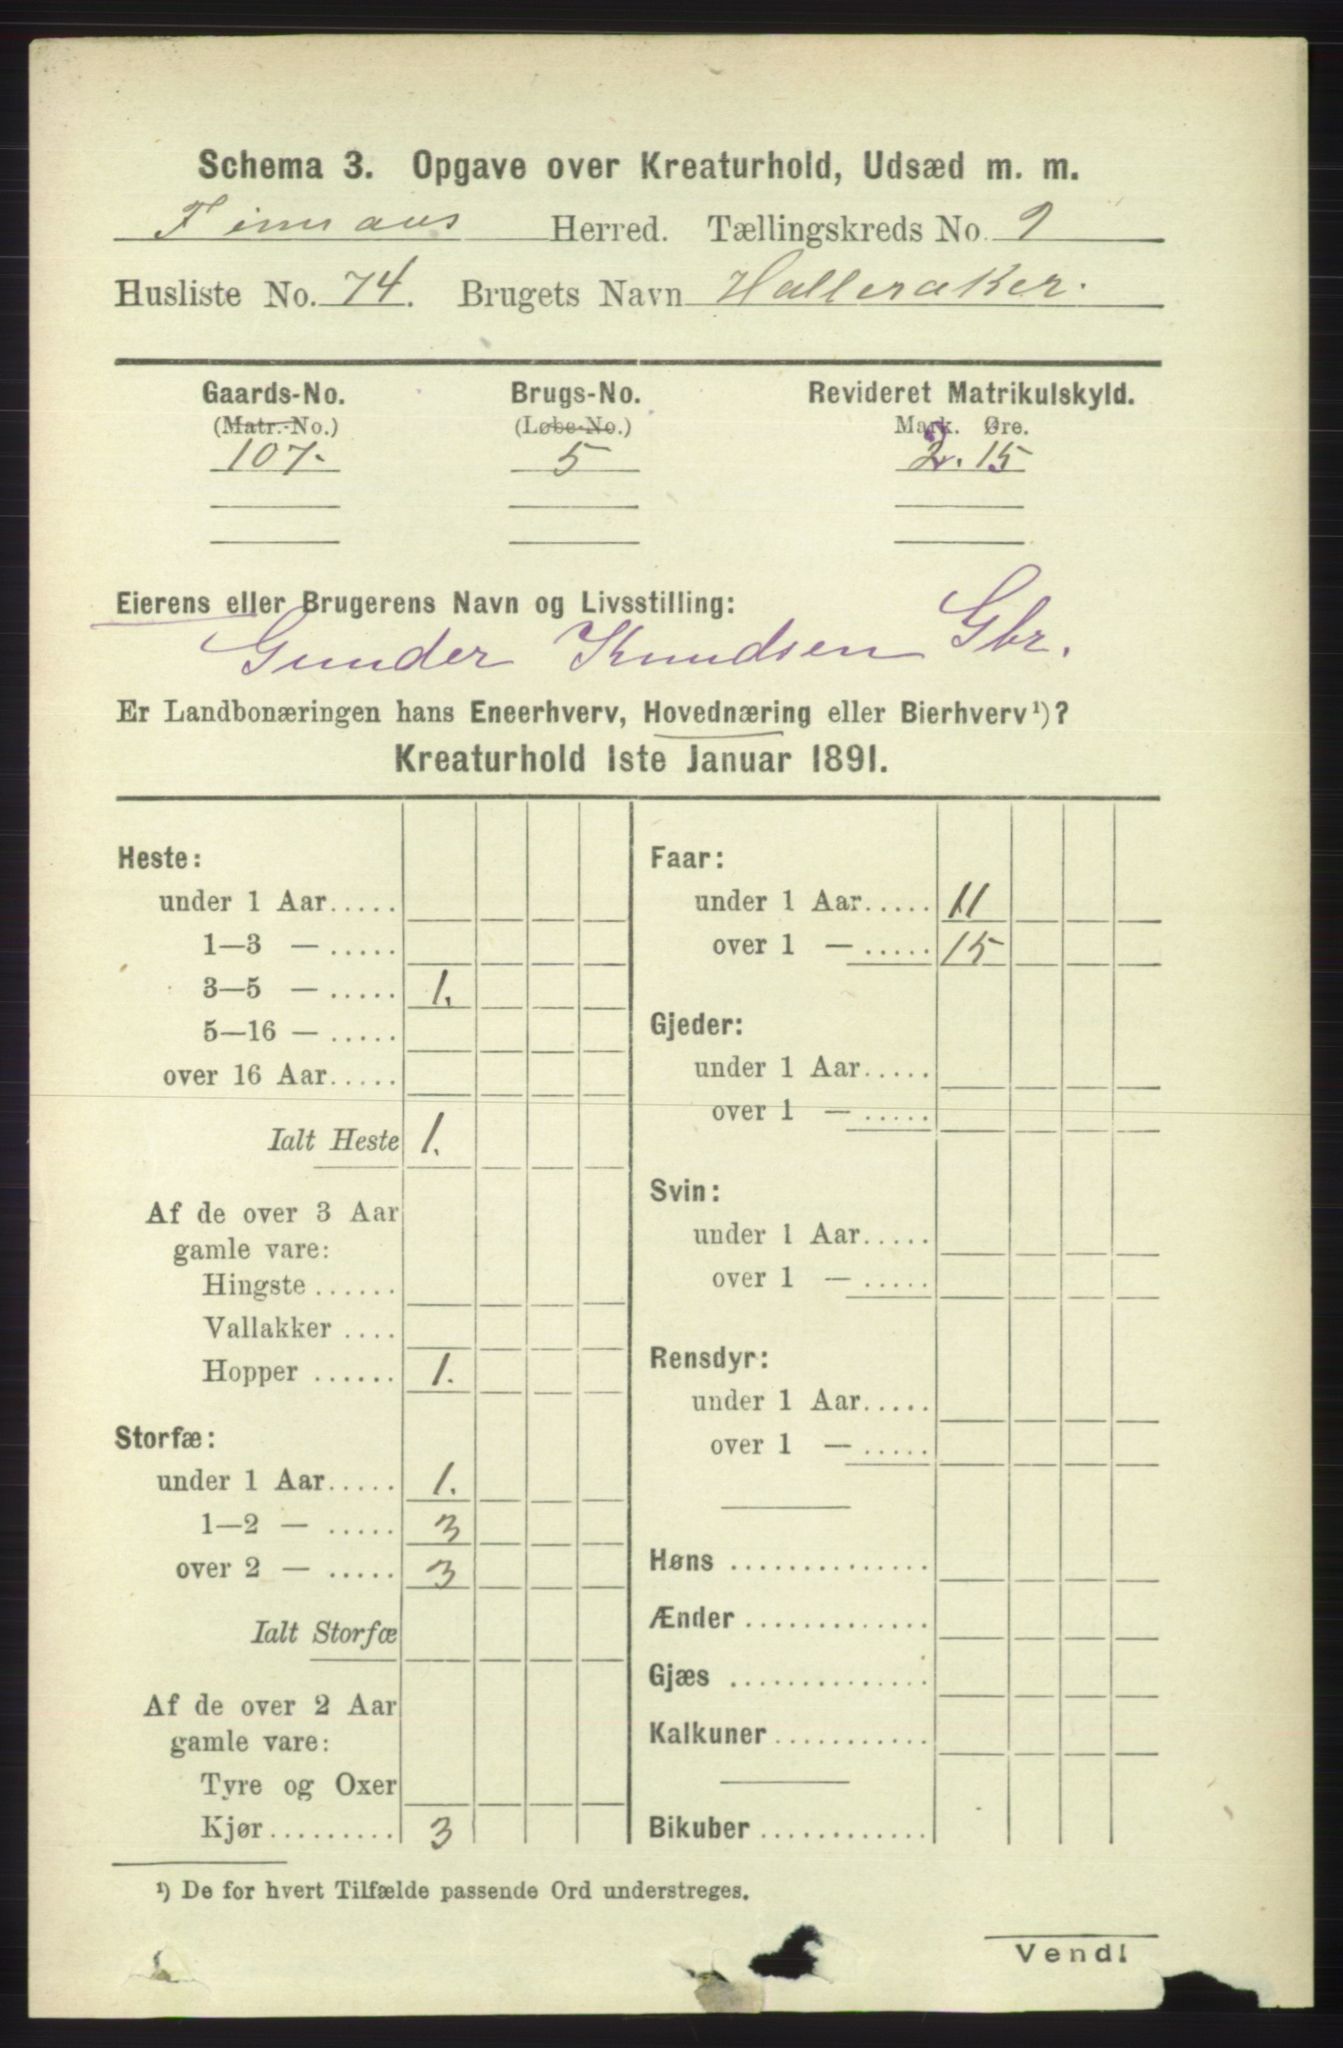 Schema 3. Opgave over Kreaturhold, Udsæd m. m.
Finnaas Herred. Tællingskreds No. 9
Husliste No. 74. Brugets Navn Halleraker.
Gaards-No. Brugs-No. Revideret Matrikulskyld.
(Matr.-No.) (Løbe-No.) Mark. Øre.
107. 5 2. 15
Eierens eller Brugerens Navn og Livsstilling:
Gunder Knudsen Gbr.
Er Landbonæringen hans Eneerhverv, Hovednæring eller Bierhverv¹)?
Kreaturhold 1ste Januar 1891.
Heste:
under 1 Aar.....
1—3 — .....
3—5 — ..... 1.
5—16 — .....
over 16 Aar.....
Ialt Heste 1.
Af de over 3 Aar
gamle vare:
Hingste ......
Vallakker ....
Hopper ...... 1.
Storfæ:
under 1 Aar..... 1.
1—2 — ..... 3
over 2 — ..... 3
Ialt Storfæ
Af de over 2 Aar
gamle vare:
Tyre og Oxer
Kjør......... 3
Faar:
under 1 Aar..... 11
over 1 — ..... 15
Gjeder:
under 1 Aar.....
over 1 — .....
Svin:
under 1 Aar.....
over 1 — .....
Rensdyr:
under 1 Aar.....
over 1 — .....
Høns ..............
Ænder .............
Gjæs ..............
Kalkuner...........
Bikuber ............
¹) De for hvert Tilfælde passende Ord understreges.
Vend!